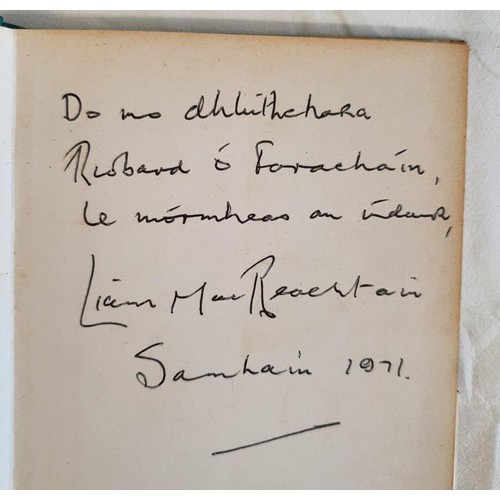 Do mo dhlúthchara
Riobard Ó Faracháin,
le mórmheas an údair,
Liam Mac Reachtain
Samhain 1971.